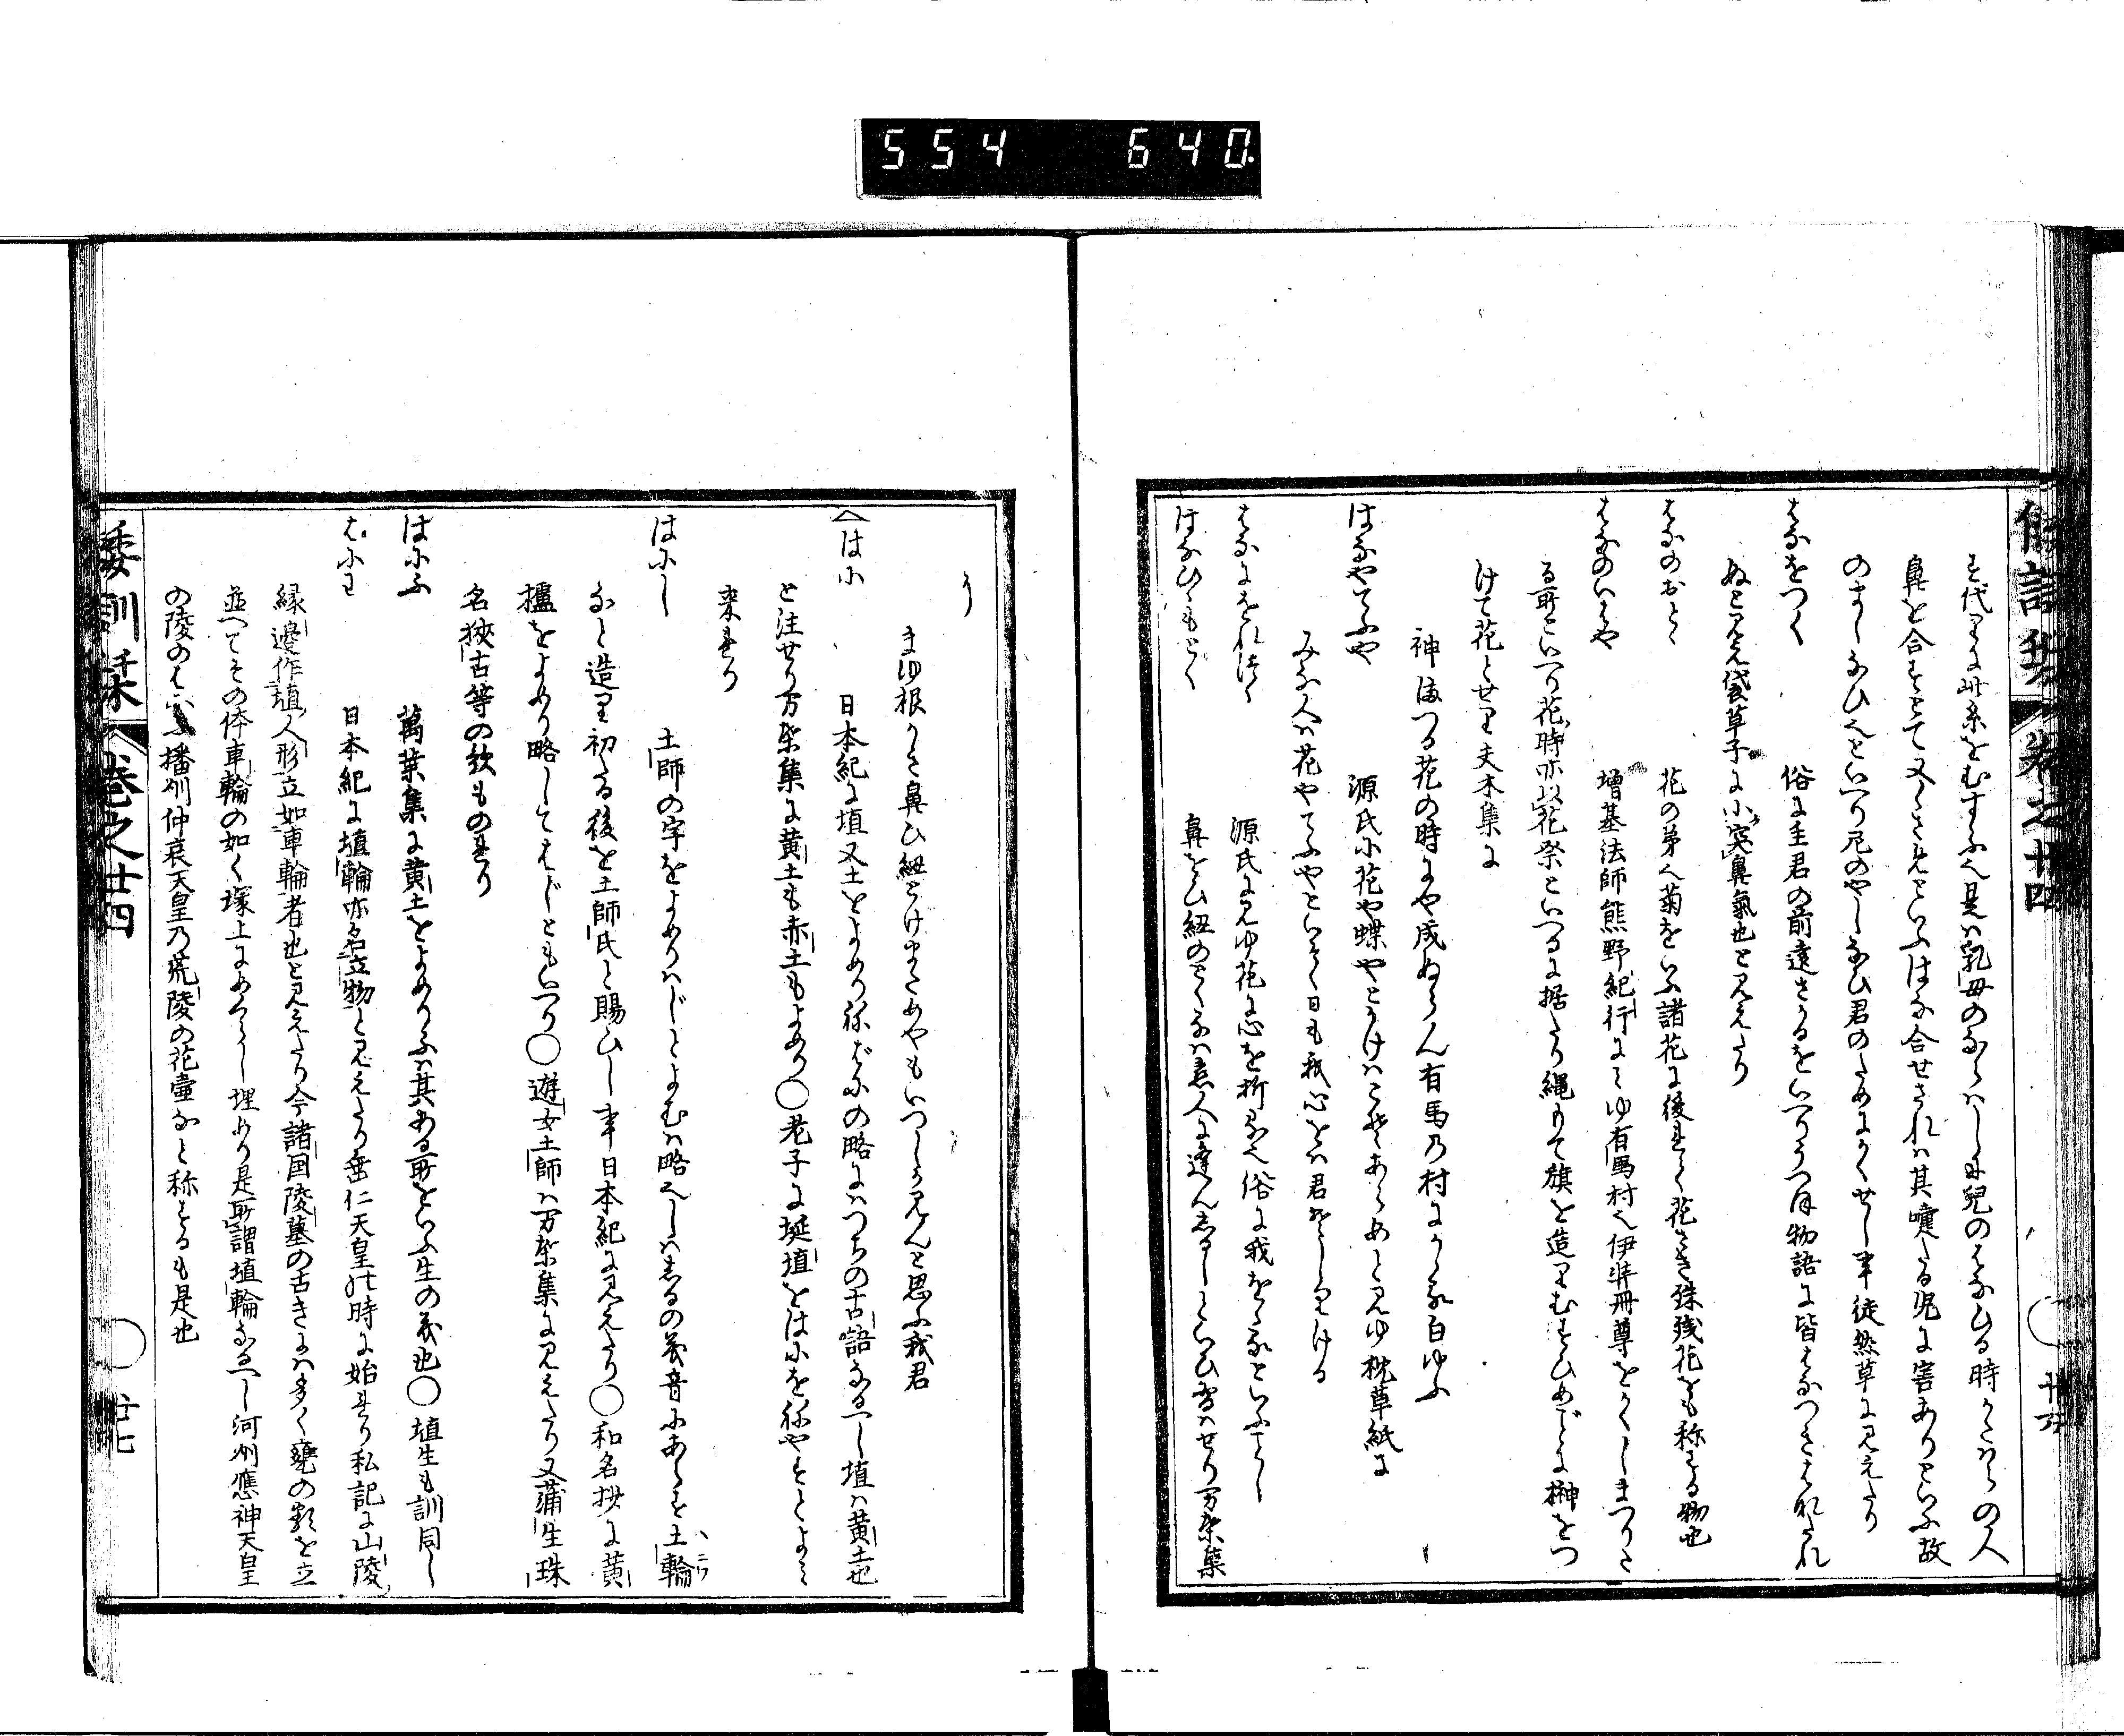 554 640
す代りに此糸をむすふ也是ハ乳母のならハし也児のはなひる時かたハらの人
鼻を合すとて又くさめといふはな合せされハ其嚏たる児に害ありといふ故
のましなひ也といへり尼のやしなひ君のためにかくせし事徒然草に見えたり
はなをつく
俗に主君の前遠さかるをいへりうつほ物語に皆はなつきはなたれ
ぬと見え袋草子に小突鼻氣也と見えたり
はなのおとゝ
花の弟也菊をいふ諸花に後れて花さき殊残花をも称する物也
はなのいはや
増基法師熊野紀行にみゆ有馬村也伊弉冊尊をかくしまつりた
る所といへり花時亦以花祭といへるに据たり縄もて旗を造りむすひあけに榊をつ
けて花とせり夫木集に
神まつる花の時にや成ぬらん有馬の村にかくる白ゆふ
はなやてふや
源氏に花や蝶やとかけハこそあらめとみゆ枕草紙に
みな人ハ花やてふやといそく日も我心をハ君そしりける
はなにをれつく
源氏にみゆ花に心を折る也俗に我ををるといふことし
はなひゝもとく
鼻をひ紐のとくるハ恋人に逢んしるしといひならハせり万葉集
倭訓栞 巻之廿四 廿六
り
まゆ根かき鼻ひ紐とけまてめやもいつしか見んと思ふ我君
へはに
日本紀に埴又土をよめりねばにの略にハつちの古語なるべし埴ハ黄土也
と注せり万葉集に黄土も赤土もよめり○老子に埏埴をはにをねやすとよみ
来れり
はにし
土師の字をよめりはじとよむハ略也しハしるの義音にあらす土輪
ハニワ
なと造り初る後を土師氏と賜ひし事日本紀に見えたり○和名抄に黄
櫨をよめり略してはじともいへり○遊女土師ハ万葉集に見えたり又蒲生珠
名狭古等の类ものなり
はにふ
萬葉集に黄土をよめりふハ其ある所をいふ生の義也○埴生も訓同し
はにわ
日本紀に埴輪亦名立物と見えたり垂仁天皇の時に始まり私記に山陵
縁邊作埴人形立如車輪者也と見えたり今諸国陵墓の古きにハ多く甕の類を立
並べてその体車輪の如く塚上にめくらし埋めり是所謂埴輪なるべし河州應神天皇
の陵のはにふ播州仲哀天皇乃荒陵の花壷なと称するも是也
倭訓栞 巻之廿四 廿七